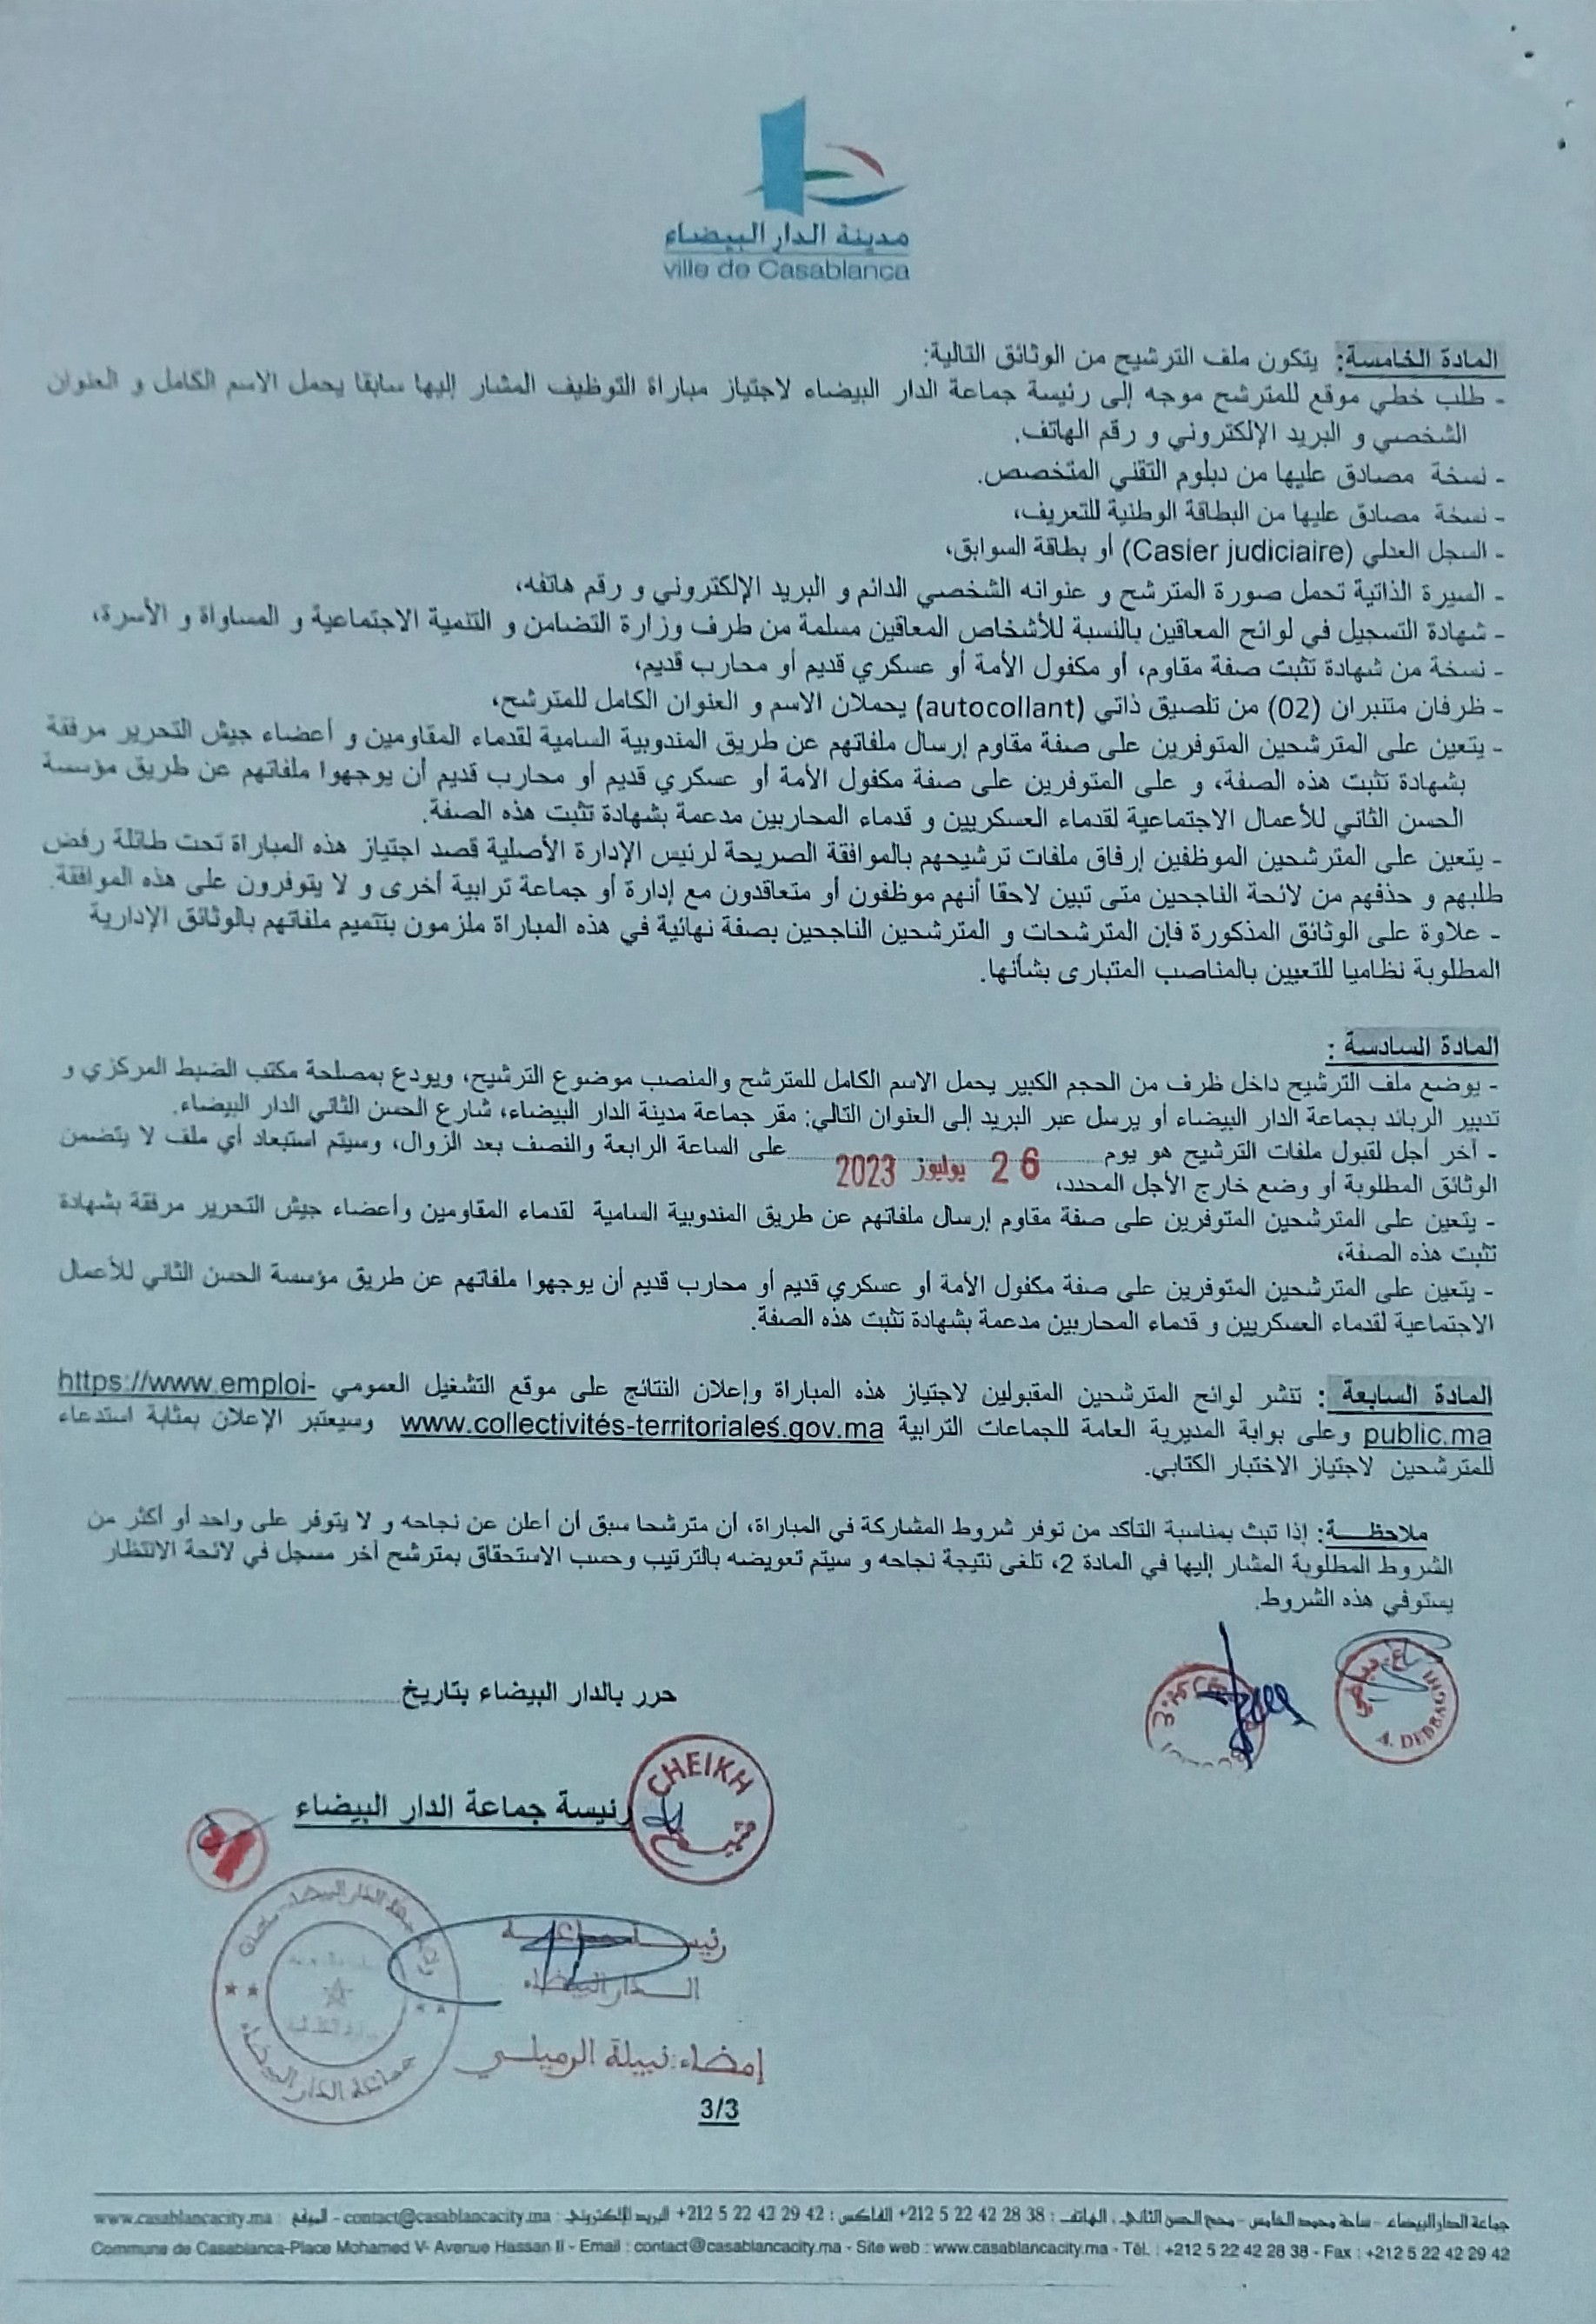 مدينة الدار البيضاء
ville de Casablanca
المادة الخامسة: يتكون ملف الترشيح من الوثائق التالية:
- طلب خطي موقع للمترشح موجه إلى رئيسة جماعة الدار البيضاء لاجتياز مباراة التوظيف المشار إليها سابقا يحمل الاسم الكامل و العنوان
الشخصي و البريد الإلكتروني و رقم الهاتف.
- نسخة مصادق عليها من دبلوم التقني المتخصص.
- نسخة مصادق عليها من البطاقة الوطنية للتعريف،
- السجل العدلي (Casier judiciaire) أو بطاقة السوابق،
- السيرة الذاتية تحمل صورة المترشح و عنوانه الشخصي الدائم و البريد الإلكتروني و رقم هاتفه،
- شهادة التسجيل في لوائح المعاقين بالنسبة للأشخاص المعاقين مسلمة من طرف وزارة التضامن و التنمية الاجتماعية و المساواة و الأسرة،
- نسخة من شهادة تثبت صفة مقاوم، أو مكفول الأمة أو عسكري قديم أو محارب قديم،
- ظرفان متنبران (02) من تلصيق ذاتي (autocollant) يحملان الاسم و العنوان الكامل للمترشح،
- يتعين على المترشحين المتوفرين على صفة مقاوم إرسال ملفاتهم عن طريق المندوبية السامية لقدماء المقاومين و أعضاء جيش التحرير مرفقة
بشهادة تثبت هذه الصفة، و على المتوفرين على صفة مكفول الأمة أو عسكري قديم أو محارب قديم أن يوجهوا ملفاتهم عن طريق مؤسسة
الحسن الثاني للأعمال الاجتماعية لقدماء العسكريين و قدماء المحاربين مدعمة بشهادة تثبت هذه الصفة.
- يتعين على المترشحين الموظفين إرفاق ملفات ترشيحهم بالموافقة الصريحة لرئيس الإدارة الأصلية قصد اجتياز هذه المباراة تحت طائلة رفض
طلبهم و حذفهم من لائحة الناجحين متى تبين لاحقا أنهم موظفون أو متعاقدون مع إدارة أو جماعة ترابية أخرى و لا يتوفرون على هذه الموافقة.
- علاوة على الوثائق المذكورة فإن المترشحات و المترشحين الناجحين بصفة نهائية في هذه المباراة ملزمون بتتميم ملفاتهم بالوثائق الإدارية
المطلوبة نظاميا للتعيين بالمناصب المتبارى بشأنها.
المادة السادسة :
- يوضع ملف الترشيح داخل ظرف من الحجم الكبير يحمل الاسم الكامل للمترشح والمنصب موضوع الترشيح، ويودع بمصلحة مكتب الضبط المركزي و
تدبير الربائد بجماعة الدار البيضاء أو يرسل عبر البريد إلى العنوان التالي: مقر جماعة مدينة الدار البيضاء، شارع الحسن الثاني الدار البيضاء.
- آخر أجل لقبول ملفات الترشيح هو يوم 26 يوليوز 2023 على الساعة الرابعة والنصف بعد الزوال، وسيتم استبعاد أي ملف لا يتضمن
الوثائق المطلوبة أو وضع خارج الأجل المحدد،
- يتعين على المترشحين المتوفرين على صفة مقاوم إرسال ملفاتهم عن طريق المندوبية السامية لقدماء المقاومين وأعضاء جيش التحرير مرفقة بشهادة
تثبت هذه الصفة،
- يتعين على المترشحين المتوفرين على صفة مكفول الأمة أو عسكري قديم أو محارب قديم أن يوجهوا ملفاتهم عن طريق مؤسسة الحسن الثاني للأعمال
الاجتماعية لقدماء العسكريين و قدماء المحاربين مدعمة بشهادة تثبت هذه الصفة.
المادة السابعة : تنشر لوائح المترشحين المقبولين لاجتياز هذه المباراة وإعلان النتائج على موقع التشغيل العمومي https://www.emploi-
public.ma وعلى بوابة المديرية العامة للجماعات الترابية www.collectivités-territoriales.gov.ma وسيعتبر الإعلان بمثابة استدعاء
للمترشحين لاجتياز الاختبار الكتابي.
ملاحظـــة: إذا تبث بمناسبة التأكد من توفر شروط المشاركة في المباراة، أن مترشحا سبق أن أعلن عن نجاحه و لا يتوفر على واحد أو أكثر من
الشروط المطلوبة المشار إليها في المادة 2، تلغى نتيجة نجاحه و سيتم تعويضه بالترتيب وحسب الاستحقاق بمترشح آخر مسجل في لائحة الانتظار
يستوفي هذه الشروط.
A. DEBBAGHI
حرر بالدار البيضاء بتاريخ
CHEIKH
رئيسة جماعة الدار البيضاء
رئيسة جماعة
الدار البيضاء
جماعة الدار البيضاء
إمضاء: نبيلة الرميلي
3/3
جماعة الدار البيضاء - ساحة محمد الخامس - محج الحسن الثاني، الهاتف : 38 28 42 22 5 212+ الفاكس : 42 29 42 22 5 212+ البريد الإلكتروني : contact@casablancacity.ma - الموقع : www.casablancacity.ma
Commune de Casablanca-Place Mohamed V- Avenue Hassan II - Email : contact@casablancacity.ma - Site web : www.casablancacity.ma - Tél. : +212 5 22 42 28 38 - Fax : +212 5 22 42 29 42